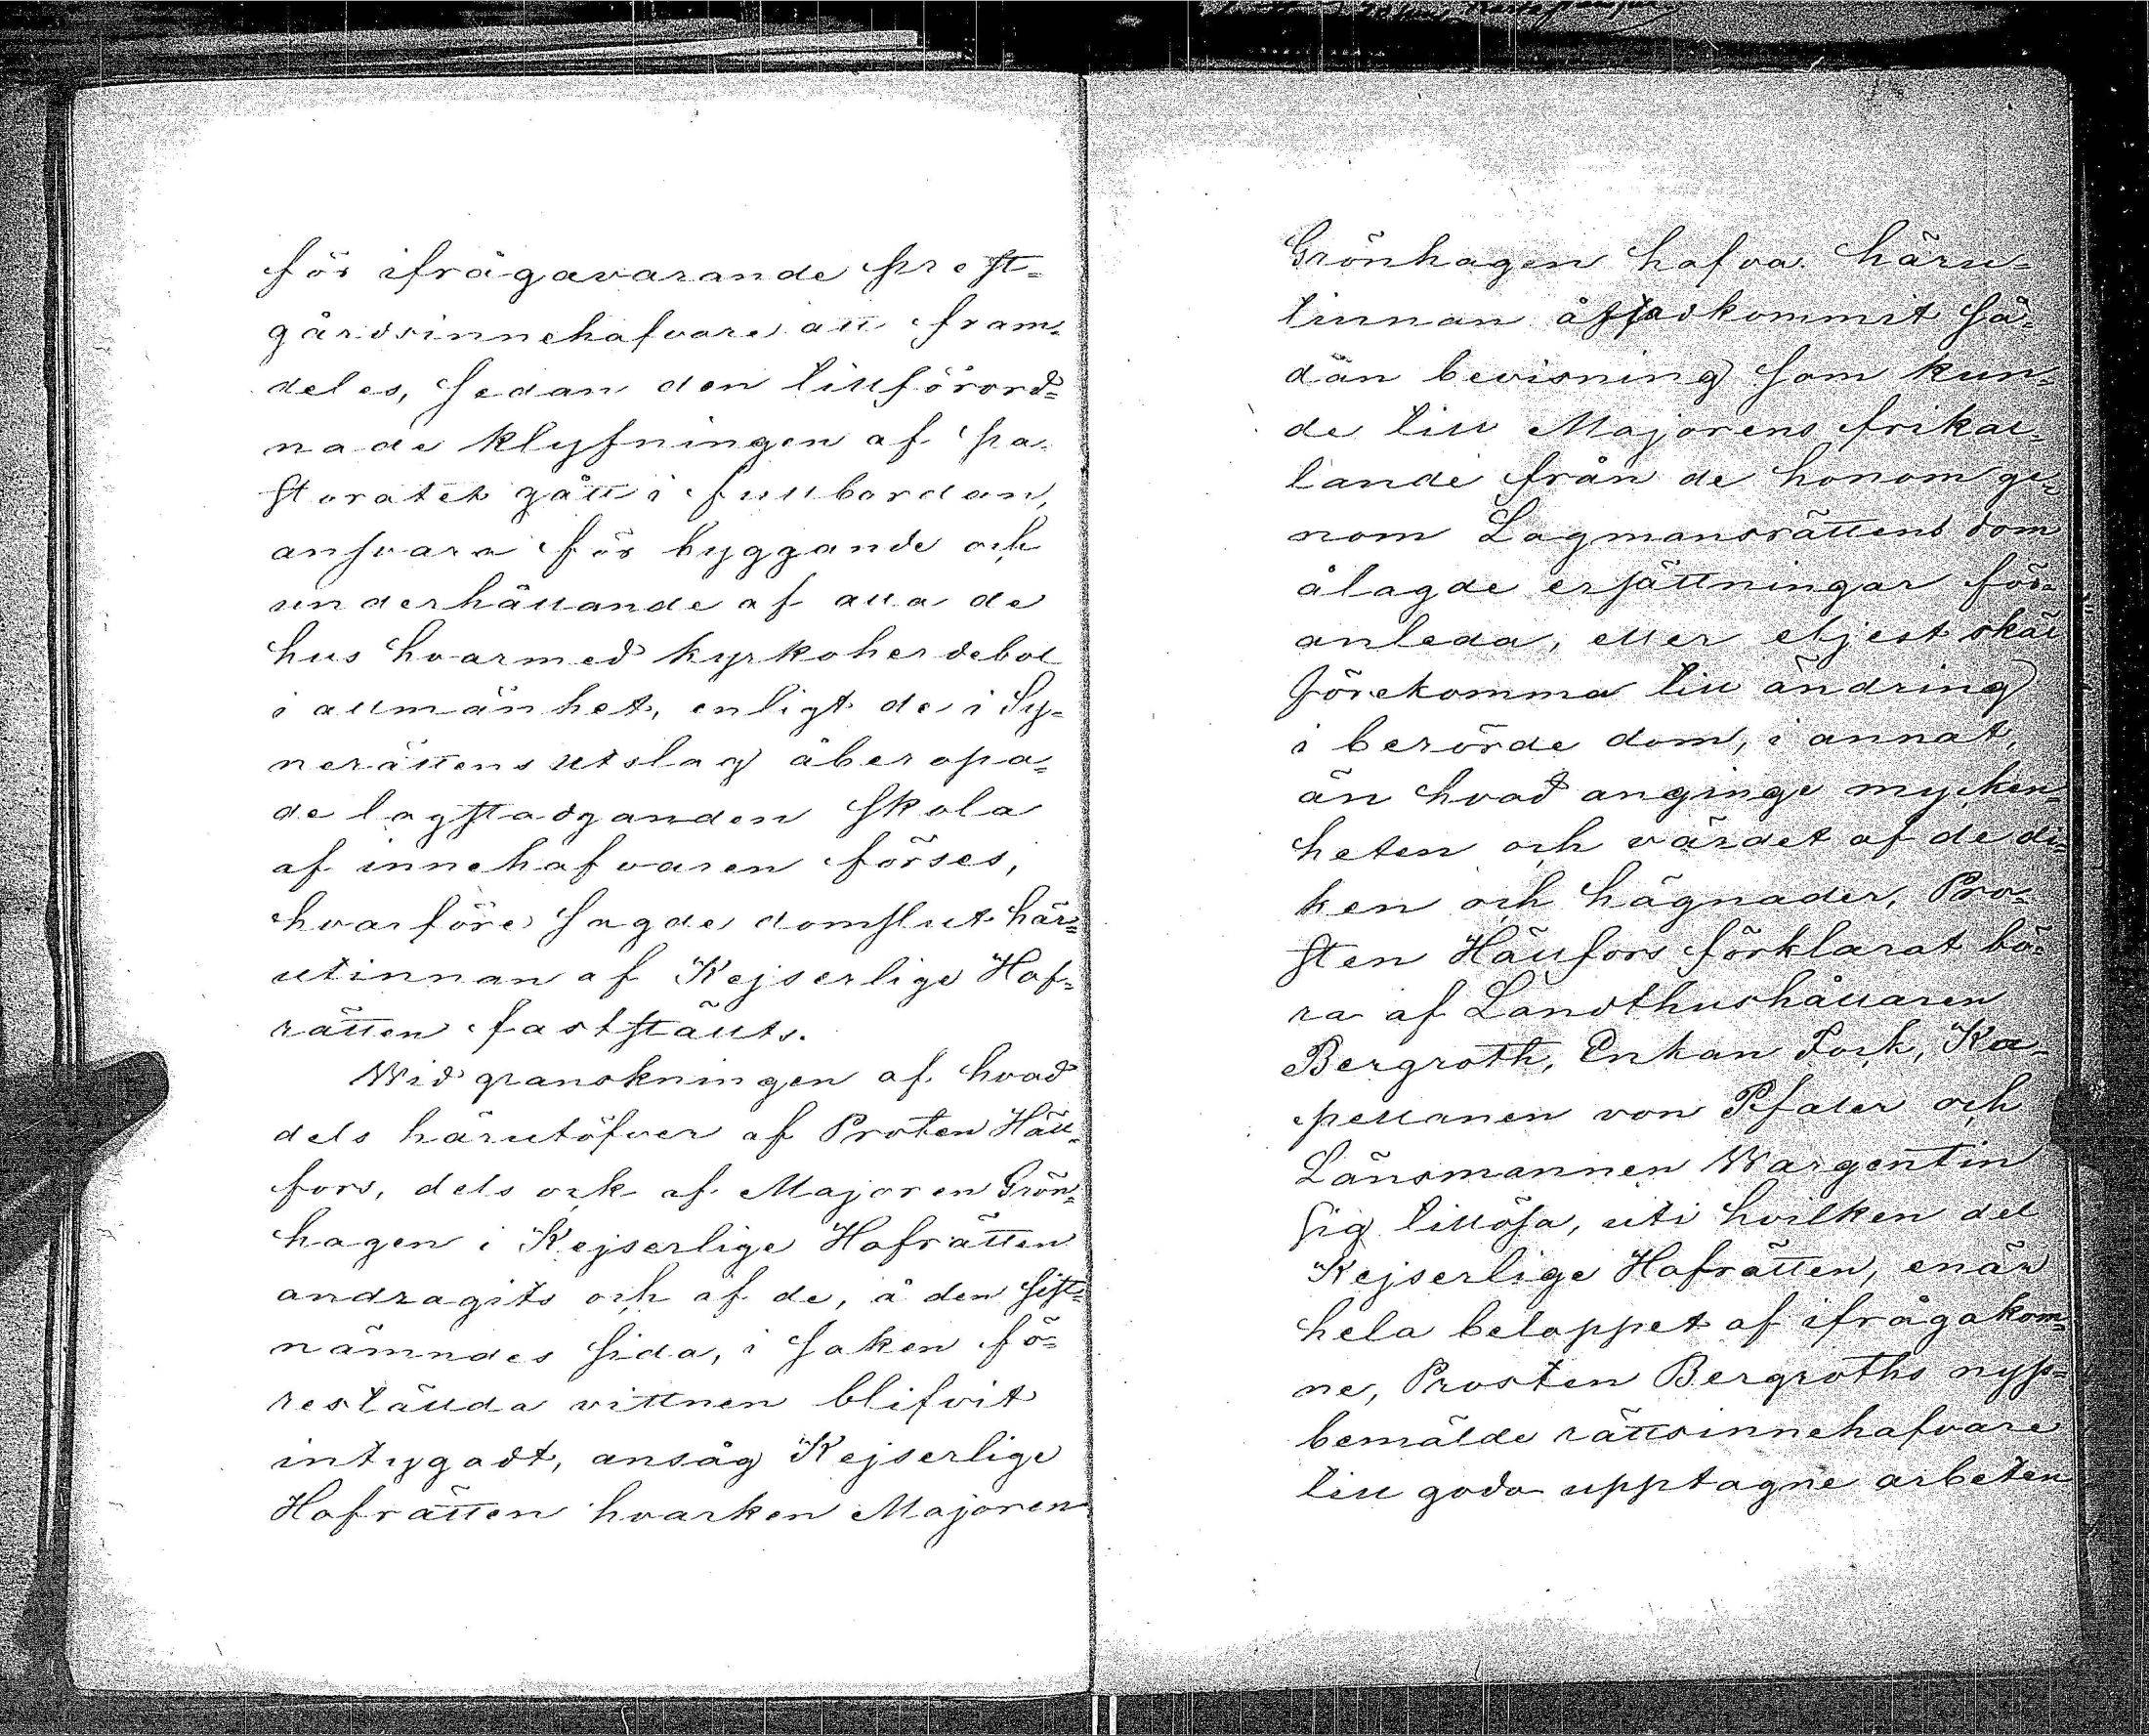 för ifrågavarande prest-
gårdsinnehafvare att fram-
deles, sedan den tillförord-
nade klyfningen af pa-
storatet gått i fullbordan,
ansvara för byggande och
underhållande af alla de
hus hvarmed kyrkoherdebol
i allmänhet, enligt de i Sy-
nerättens utslag åberopa-
de lagstadganden skola
af innehafvaren förses,
hvarföre sagde domslut här-
utinnan af Kejserlige Hof-
rätten fastställts.
Wid granskningen af hvad
dels härutöfver af Prosten Häll-
fors, dels ock af Majoren Grön-
hagen i Kejserlige Hofrätten
andragits och af de, å den sist-
nämndes sida, i saken fö-
reställda vittnen blifvit
intygadt, ansåg Kejserlige
Hofrätten hvarken Majoren
Grönhagen hafva häru-
tinnan åstadkommit så-
dan bevisning som kun-
de till Majorens frikal-
lande från de honom ge-
nom Lagmansrättens dom
ålagde ersättningar för-
anleda, eller eljest skäl
förekomma till ändring
i berörde dom, i annat,
än hvad anginge mycken-
heten och värdet af de di-
ken och hägnader, Pro-
sten Hällfors förklarat bö-
ra af Landthushållaren
Bergroth, Enkan Fock, Ka-
pellanen von Pfaler och
Länsmannen Wargentin
sig tillösa, uti hvilken del
Kejserlige Hofrätten, enär
hela beloppet af ifrågakom-
ne, Prosten Bergroths nyss-
bemälde rättsinnehafvare
till godo upptagne arbeten